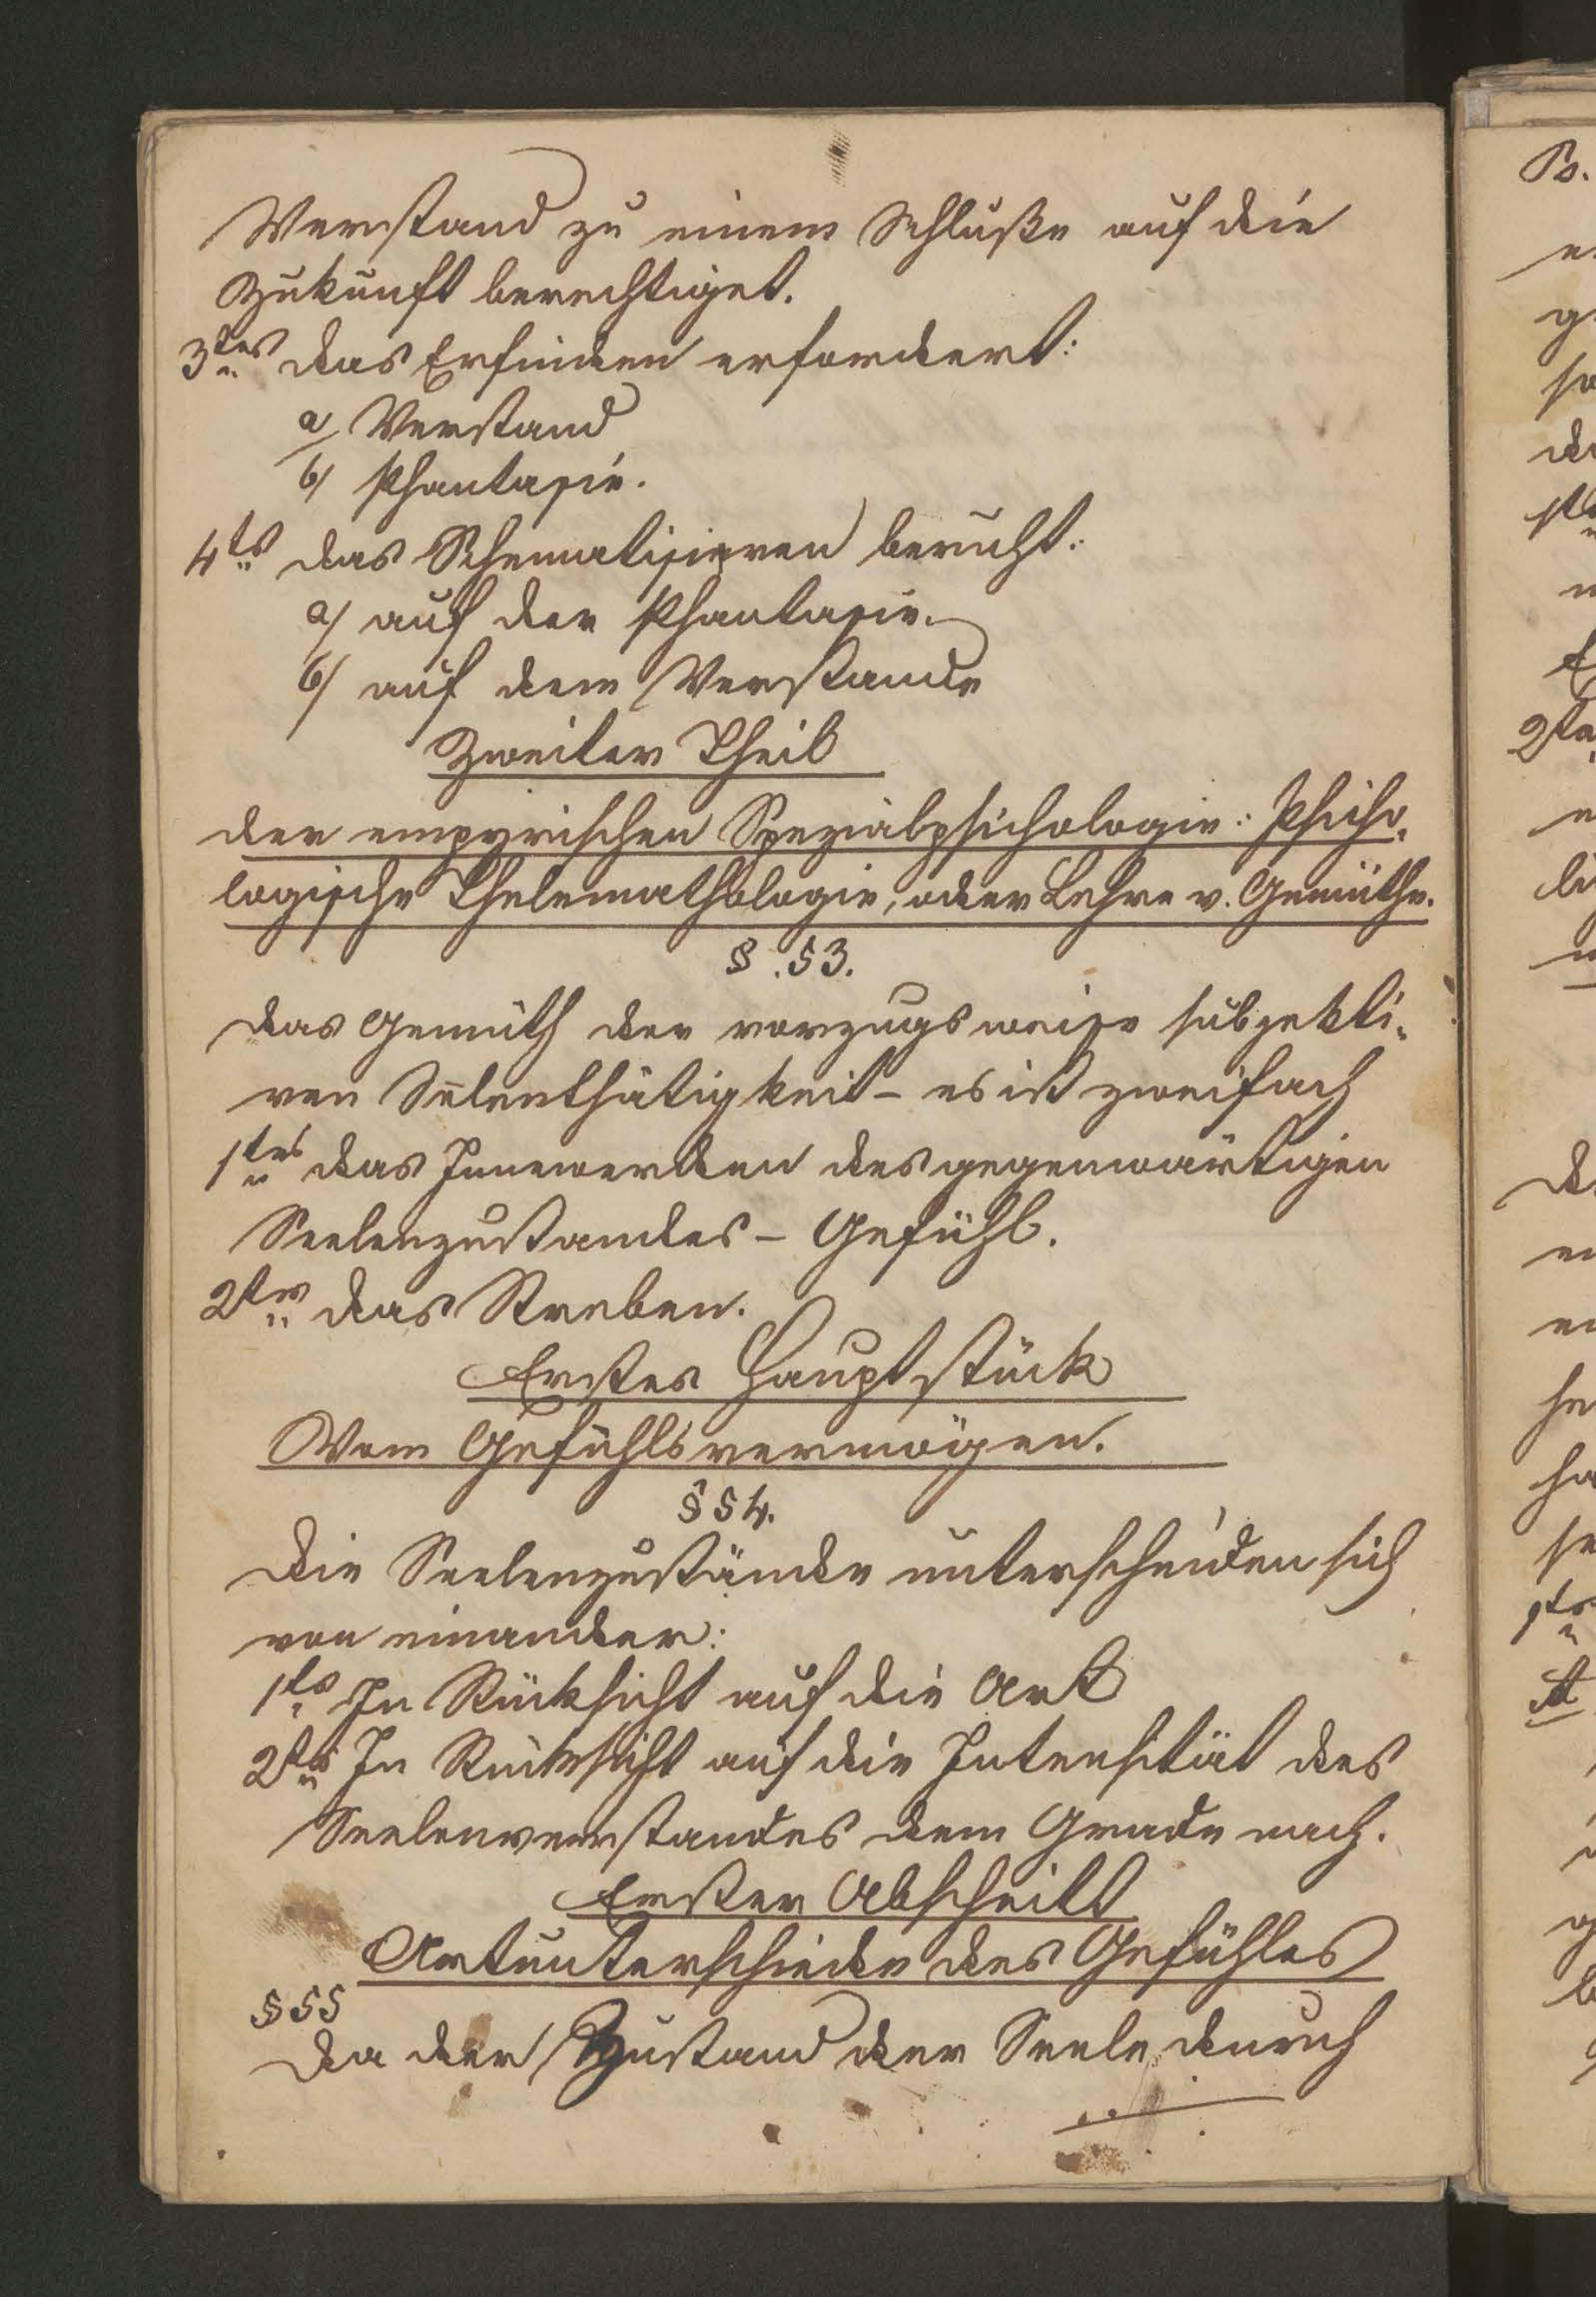 Verstand zu einem Schluße auf die
Zukunft berechtiget.
3tes das Erfinden erfordert:
a/ Verstand
b/ Phantasie.
4ts das Schematisieren beruht:
a/ auf der Phantasie.
b/ auf dem Verstande
Zweiter Theil
der empyrischen Spezialpsichologie: Psicho¬
logische Thelemathologie, oder Lehre v. Gemüthe.
§ .53.
Das Gemüth der vorzugsweise subjekti¬
ven Selenthätigkeit – es ist zweifach
1tes das Innewerden des gegenwärtigen
Seelenzustandes – Gefühl.
2tes das Streben.
Erstes Hauptstück
Vom Gefühlsvermögen.
§ 54.
Die Seelenzustände unterscheiden sich
von einander:
1ts In Rücksicht auf die Art
2ts In Rücksicht auf die Intensität des
Seelenverstandes dem Grade nach.
Erster Abschnitt
Artunterschiede des Gefühles
§ 55
Da der Zustand der Seele durch